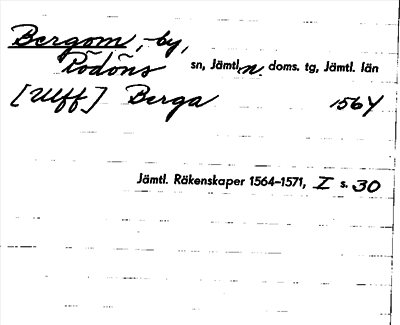 Bergom, -by,
Rödöns sn, Jämtl. n. doms. tg, Jämtl. län
[Ulff] Berga 1564
Jämtl. Räkenskaper 1564–1571, I s. 30